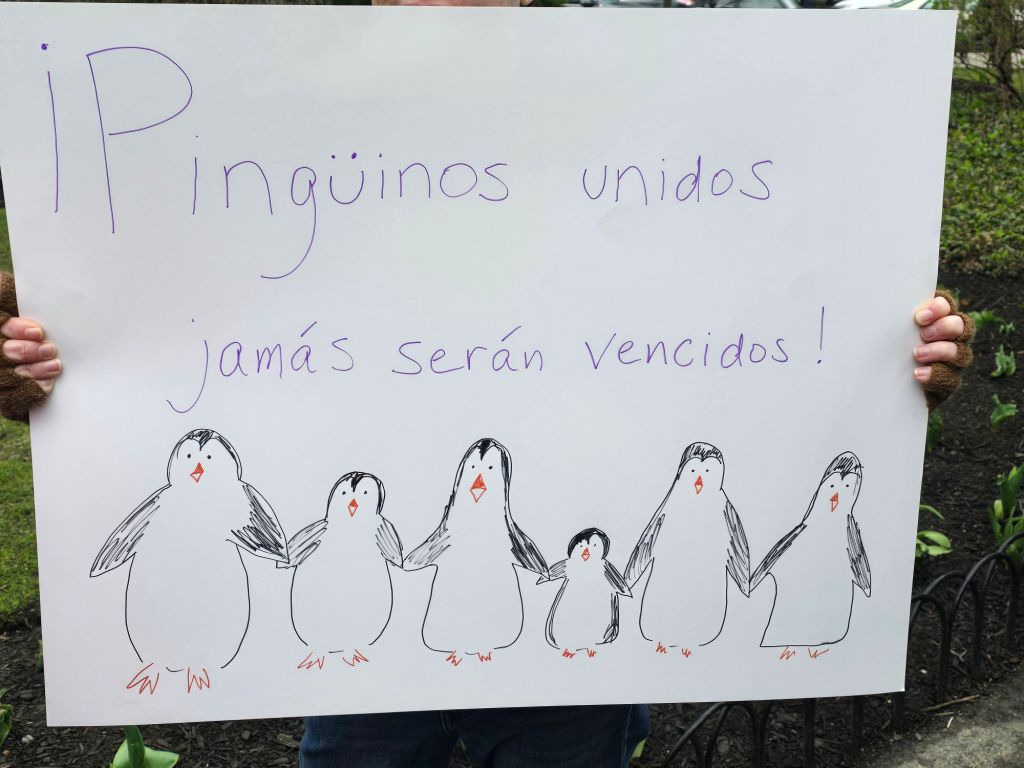 ¡Pingüinos unidos
jamás serán vencidos!